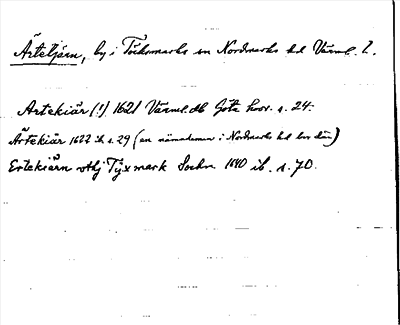 Ärtetjärn, by i Töcksmarks sn Nordmarks hd Värml. l.
Artekiär (!) 1621 Värml. db Göta hovr. s. 24.
Ärtekiär 1622 ib s. 29 (en nämndeman i Nordmarks hd bor där)
Ertekiärn vthj Tÿxmark Sochn 1640 ib. s. 70.